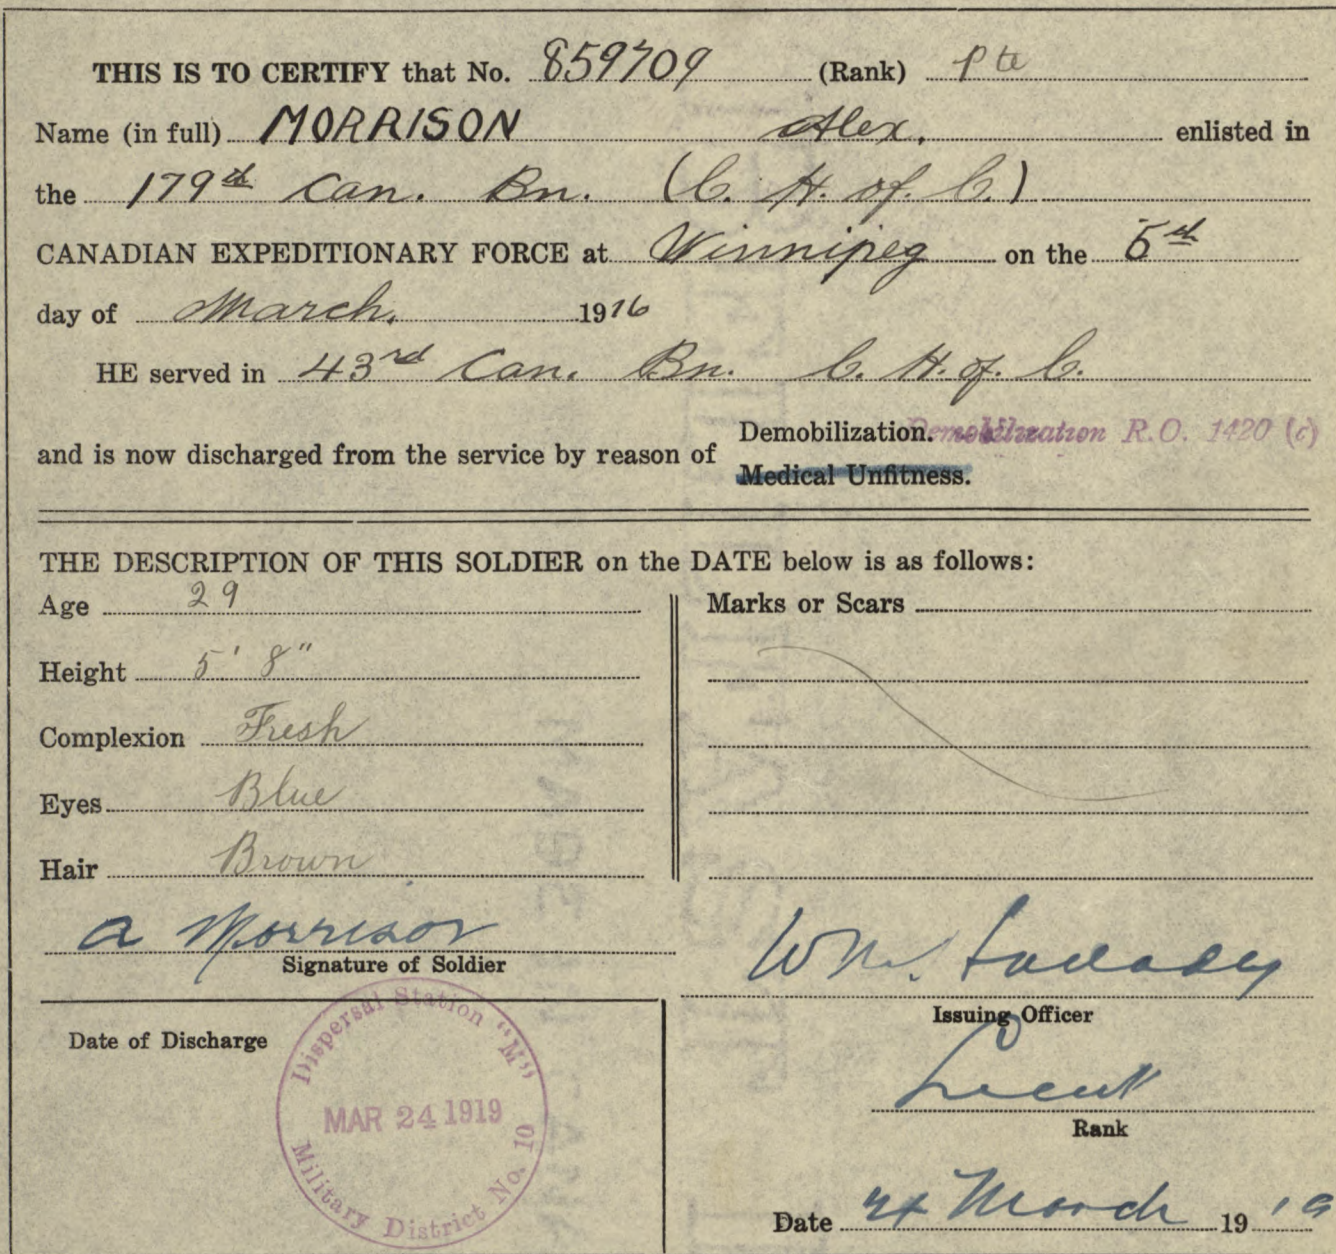 THIS IS TO CERTIFY that No. 859709 (Rank) Pte
Name (in full) MORRISON Alex. enlisted in
the 179th Can. Bn. (C. H. of. C.)
CANADIAN EXPEDITIONARY FORCE at Winnipeg on the 5th
day of March. 1916
HE served in 43rd Can. Bn. C. H. of. C.
and is now discharged from the service by reason of
Demobilization. Demobilization R.O. 1420 (c)
Medical Unfitness.
THE DESCRIPTION OF THIS SOLDIER on the DATE below is as follows:
Age 29
Height 5' 8"
Complexion Fresh
Eyes Blue
Hair Brown
Marks or Scars
A Morrison
Signature of Soldier
Wm.
Issuing Officer
Lieut
Rank
Date of Discharge
Dispersal Station "M"
MAR 24 1919
Military District No. 10
Date 24 March 1919